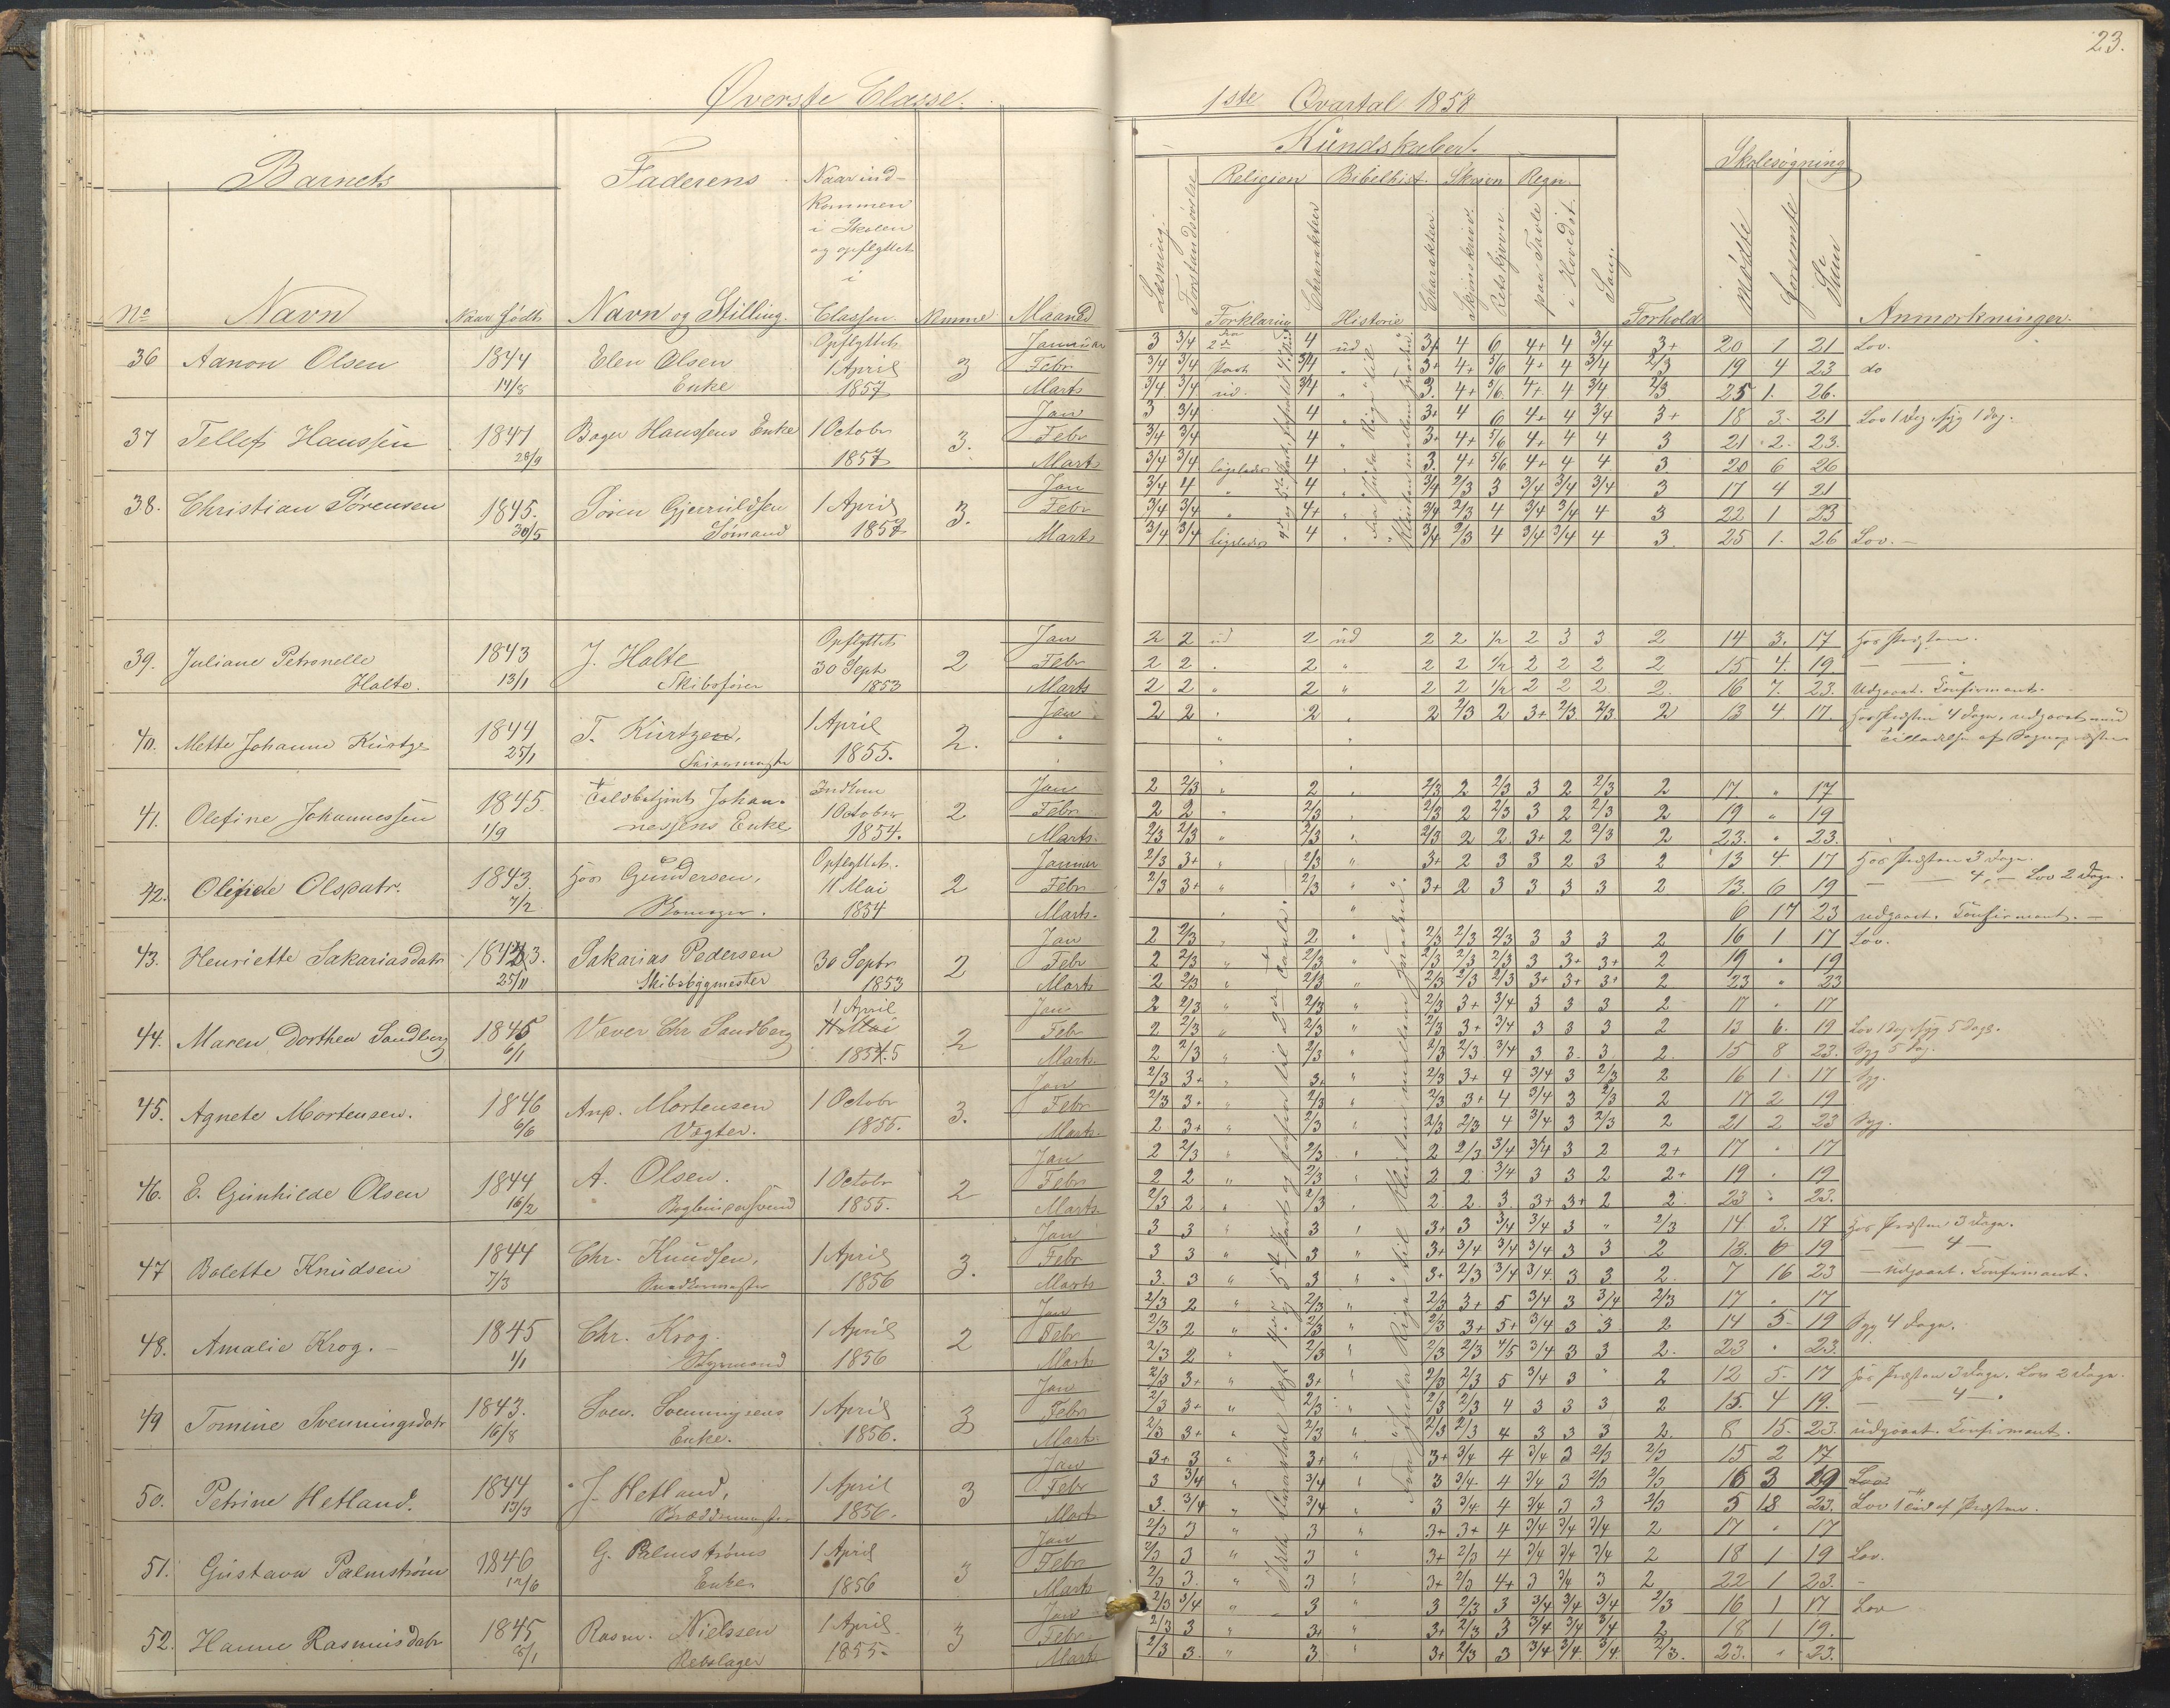 23.
Øverste Classe.
1ste Qvartal 1858
Barnets
Faderens
Naar ind-
kommen
i Skolen
og opflyttet
i
Classen.
Kundskaber.
Skolesøgning
Religion Bibelhist. Skriven Regn.
No Navn Naar født Navn og Stilling. Nemme Maaned
Læsning. Forklaring Charakteer Historie Charakteer. Skjønskriv. Retskrivn. paa Tavle i Hovedet. Sang. Forhold mødte forsømte Sum Anmærkninger.
36 Aanon Olsen 1844 14/8 Elen Olsen Enke Opflyttet 1 April 1857 3
Januar 3 3/4 4 ud 3+ 4 6 4+ 4 3/4 3+ 20 1 21 Lov.
Febr 3/4 3/4 Part 3/4 " 3+ 4+ 5/6 4+ 4 3/4 2/3 19 4 23 do
Marts 3/4 3/4 ud 3/4 " 3. 4+ 5/6 4+ 4 3/4 2/3 25 1. 26.
37 Tellef Hanssen 1847 28/9 Bager Hanssens Enke 1 Octobr 1857 3.
Jan 3 3/4 4 3+ 4 6 4+ 4 3/4 3+ 18 3. 21 Lov 1 dag, syg 1 dag.
Febr 3/4 3/4 4 3+ 4+ 5/6 4+ 4 4 3 21 2. 23.
Marts 3/4 3/4 ligeledes 4 3. 4+ 5/6 4+ 4 4 3 20 6 26
38. Christian Sørensen 1845. 30/5 Søren Gjeruldsen Sømand 1 April 1857 3.
Jan 3/4 4 " 4 3/4 2/3 3 3/4 3/4 3/4 3 17 4 21
Febr 3/4 3/4 " 4+ 3/4 2/3 4 3/4 3/4 4 3 22 1 23
Marts 3/4 3/4 ligeledes 4 3/4 2/3 4 3/4 3/4 4 3. 25 1. 26 Lov. —
39. Juliane Petronelle Halto. 1843 13/1 J. Halte Skibsfører Opflyttet 30 Sept 1853 2
Jan 2 2 ud 2 ud 2 2 1/2 2 3 3 2 14 3. 17 hos Præsten.
Febr 2 2 . 2 " 2 2 1/2 2 2 2 2 15 4. 19 — — "
Marts 2 2 " 2 " 2 2 1/2 2 2 2. 2. 16 7. 23. Udgaaet. Confirmant.
40. Mette Johanne Kürtze 1844 25/1 T. Kürtzen, 1 April 1855. 2.
Jan 2 2 . 2 . 2 2/3 2 3+ 2/3 2/3 2 13 4 17. hos Præsten 4 dage, udgaaet med
Tilladelse af Sognepræsten
41. Olefine Johannessen 1845. 1/9 Johan-
nessens Enke Indkom 1 October 1854. 2
Jan 2 2/3 " 2 . 2/3 2 2/3 3 2 2/3 2 17 " 17
Febr. 2 2 " 2/3 . 2/3 2 2/3 3 2 2/3 2 19 " 19
Marts. 2/3 2/3 " 2/3 . 2/3 2 2 3+ 2 2/3 2 23. " 23.
42. Olsdatr. 1843. 7/2 Hos Gundersen, Opflyttet. 11 Mai 1854 2
Januar 2/3 3+ " 2/3 " 3+ 2 3 3 2 3 2 13 4 17 hos Præsten 3 dage.
Febr 2/3 3+ " 2/3 " 3+ 2 3 3 3 3 2 13. 6 19 — — 4, — Lov 2 dage.
Marts. 6 17 23 udgaaet. Confirmant. —
43. Henriette Sakariasdatr 1843. 25/11 Sakarias Pedersen Skibsbygmester 30 Septr 1853 2
Jan 2 2/3 " 2 " 2/3 2/3 2/3 3 3 3 2 16 1 17 Lov.
Febr 2 2/3 " 2/3 " 2/3 2/3 2/3 3 3+ 3+ 2 19 " 19
Marts 2 2/3 " 2/3 " 2/3 2/3 2/3 3+ 3+ 3+ 2 23 " 23
44. Maren Dorthea Sandberg 1845 6/1 Væver Chr Sandberg 1 April 11 Mai 1854.5 2
Jan 2 2/3 " 2/3 " 2/3 3+ 3/4 3 3 3 2 17 . 17
Febr 2 2/3 " 2/3 " 2/3 3+ 3/4 3 3 3 2 13 6. 19 Lov 1 dag, syg 5 dage.
Marts. 2 2/3 " 2/3 " 2/3 2/3 3/4 3 3. 3 2. 15 8 23. Syg 5 dag.
45. Agnete Mortensen. 1846 6/6 And. Mortensen Vægter. 1 Octobr 1855. 3.
Jan 2/3 3+ " 3+ " 2/3 3+ 4 3/4 3 2/3 2 16 1. 17 Syg.
Febr 2/3 3+ " 2/3 " 2/3 3+ 4 3/4 3 2/3 2 17 2 19
Marts. 2 3+ " 2/3 " 2/3 2/3 4 3/4 3 2/3 2 21 2 23 Syg.
46. E. Gunhilde Olsen 1844 16/2 A. Olsen. Bogbindersvend 1 Octobr 1855. 2
Jan 2 2/3 " 2/3 . 2 2/3 3/4 3/4 3 2 2+ 17 . 17
Febr 2 2 " 2/3 . 2 2 3/4 3 3 2 2+ 19 . 19
Marts 2/3 2 " 2/3 . 2. 2. 3. 3+ 3+ 2 2. 23 . 23.
47 Bolette Knudsen 1844 7/3 Chr. Knudsen, 1 April 1856 3.
Jan 3 3 " 3 " 3+ 3 3/4 3/4 3 " 2/3 14 3. 17 hos Præsten 3 dage.
Febr 3 3 " 3 " 3+ 3/4 3/4 3/4 3 3 2 13. 6 19 — — 4 —
Marts 3. 3 " 3 " 3+ 2/3 3/4 3/4. 3 3 2. 7 16 23 — udgaaet. Confirmant.
48. Amalie Krog. — 1845 1/1 Chr. Krog. Styrmand 1 April 1856 2
Jan 2/3 2 " 2/3 " 2/3 3+ 5 3/4 3 3/4 2/3 17 . 17
Febr 2/3 2 " 2/3 " 2/3 3+ 5+ 3/4 3 3 2 14 5- 19 Syg 4 dage.
Marts 2/3 2 " 2/3 " 2/3 2/3 4/5 3/4 3 3 2. 23 . 23.
49 Tomine Svenningsdatr 1843. 16/8 Sven. Svenningsens Enke. 1 April 1856. 3
Jan 2/3 3+ 3+ " 2/3 2/3 5 3/4 3 " 2 12 5. 17 hos Præsten 3 dage. Lov 2 dage.
Febr 2/3 3+ " 2/3 " 2/3 2/3 4 3 3 3 2 15. 4 19. — — 4 —
Marts 2/3 3+ " 2/3 " 2/3 2/3 4 3 3 3 2. 8 15. 23. udgaaet. Confirmant.
50. Petrine Hetland. 1844 13/3 J. Hetland, 1 April 1856. 3
Jan 3+ 3 . 3+ " 3+ 3/4 4 3/4 3 2/3 2/3 15 2 17
Febr 3 3/4 " 3/4 " 3 3/4 4 3/4 3 2/3 2/3 16 3 19 Lov.
Marts 3. 3/4 " 3/4 . 3 3/4 4 3/4 3 3 2/3 5 18 23. Lov af Præsten.
51. Gustava Palmstrøm 1846 12/6 G. Palmstrøms Enke. 1 April 1856 3
Jan 2/3 3 " 3 " 3+ 3+ 4 3/4 3/4 3/4 2 17 . 17
Febr 2/3 3 " 3 " 3+ 2/3 4 3/4 3/4 3/4 2 18 1 19 Lov.
Marts 2/3 3. " 3 " 3+ 2/3 4+ 3 3/4 3 2 22 1 23. —
52. Hanne Rasmusdatr 1845 8/1 Rasm. Nielssen Rebslager 1 April 1855. 3
Jan 2/3 3/4 " 3 " 3 2/3 3 3/4 3/4 3/4 2/3 16 1 17 Lov
Febr 2/3 3 " 3+ " 3+ 2/3 3 3/4 3/4 3/4 2 18 1 19.
Marts 2/3 3. " 3. " 3+ 2/3 3 3/4 3/4. 3/4. 2/3. 23. " 23.